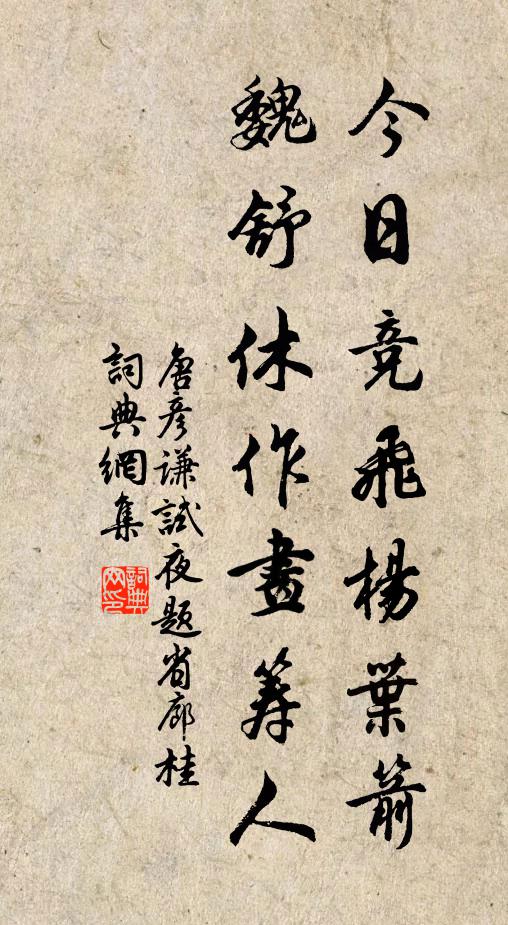 今日竞飛楊葉箭
魏舒休作畫筹人
唐彦谦試夜題省廊桂
詞典網集
詞典
网印